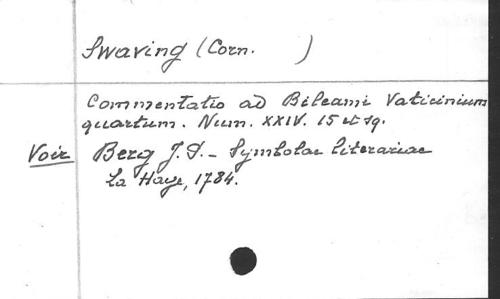 Swaving (Corn. )
Commentatio ad Bileami Vaticinium
quartum. Num. XXIV. 15 et sq.
Voir Berg J. S. - Symbolae literariae
La Haye, 1784.